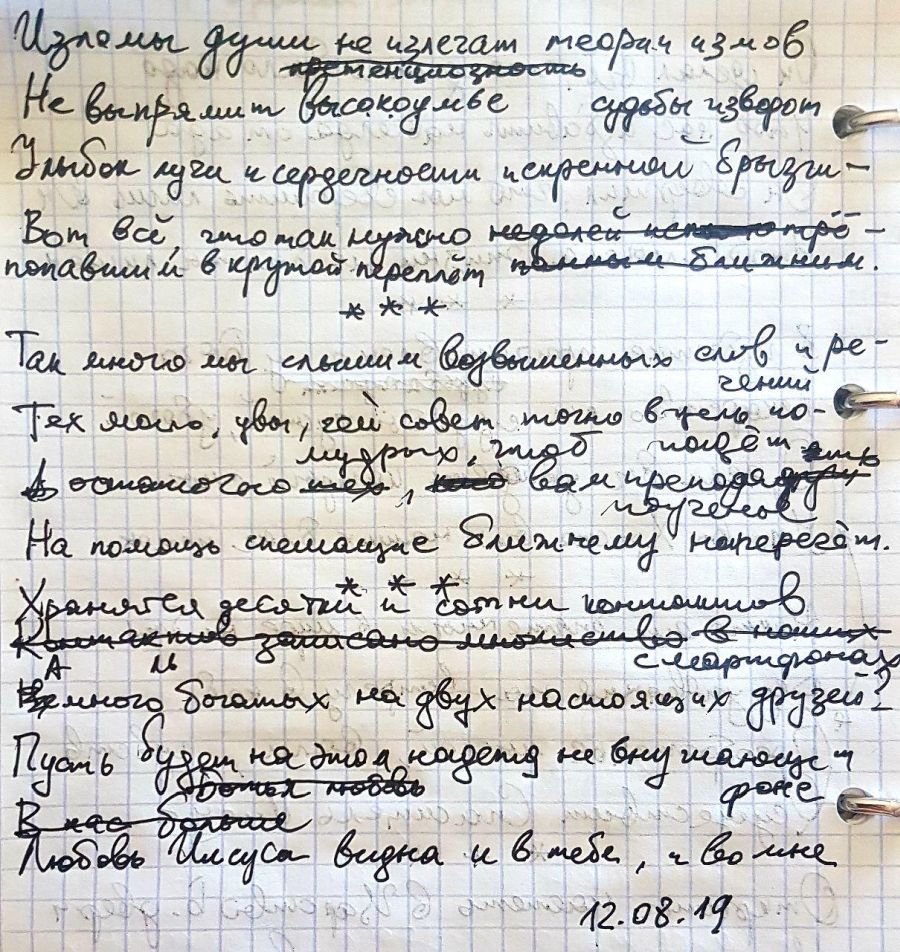 Изломы души не излечат теории измов
претенциозность
Не выпрямит высокоумье судьбы изворот
Улыбок лучи и сердечности искренной брызги –
Вот всё, что так нужно неделей трё-
попавший в крутой переплёт панным ближним.
* * *
Так много мы слышим возвышенных слов и ре-
чений
Тех мало, увы, чей совет точно в цель по-
мудрых, чтоб падёт
А остального, вам преподать
поученье
На помощь спешащие ближнему наперечёт.
* * *
Хранятся десятки и сотни контактов
Контактов записано множество в наших
смартфонах
А мн
много богатых на двух настоящих друзей?
Пусть будет на этом надета не внушающем
Божья любовь фоне
В нас больше
Любовь Иисуса видна и в тебе, и во мне
12.08.19